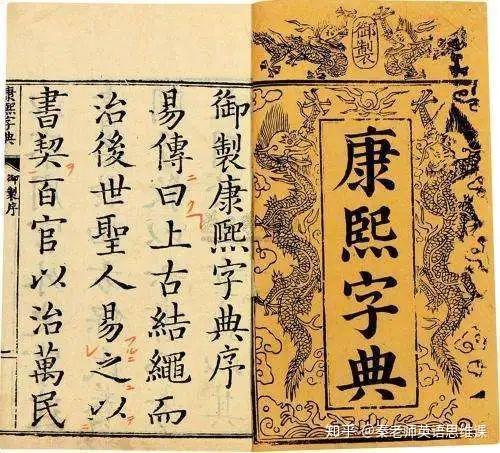 御製
康熙字典
御製康熙字典序
易傳曰上古結繩而
治後世聖人易之以
書契百官以治萬民
康熙字典
御製序
知乎 @秦老师英语思维课